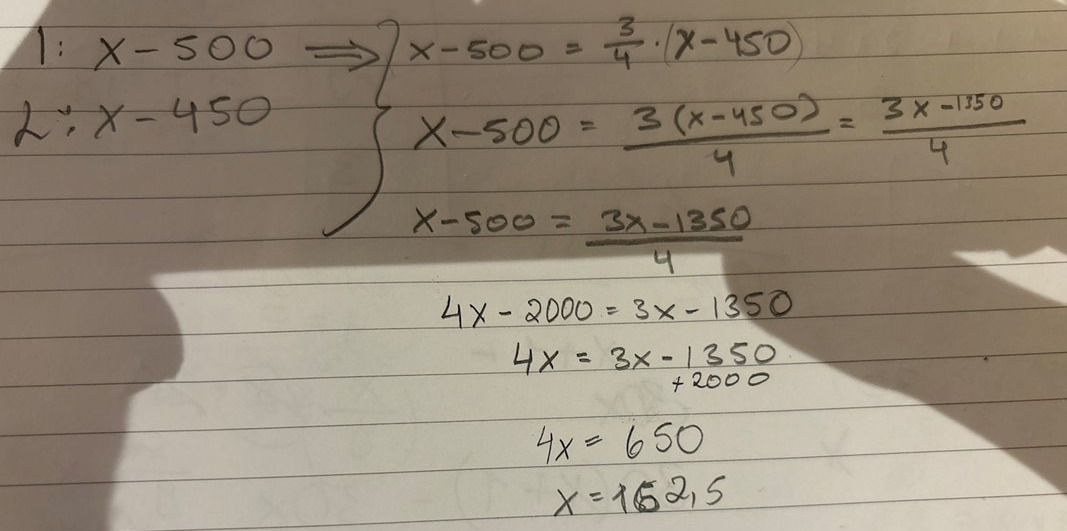 1: x - 500 ⟹ } x - 500 = 3/4 · (x - 450)
2: x - 450
x - 500 = 3(x - 450)/4 = 3x - 1350/4
x - 500 = 3x - 1350/4
4x - 2000 = 3x - 1350
4x = 3x - 1350
+ 2000
4x = 650
x = 162,5